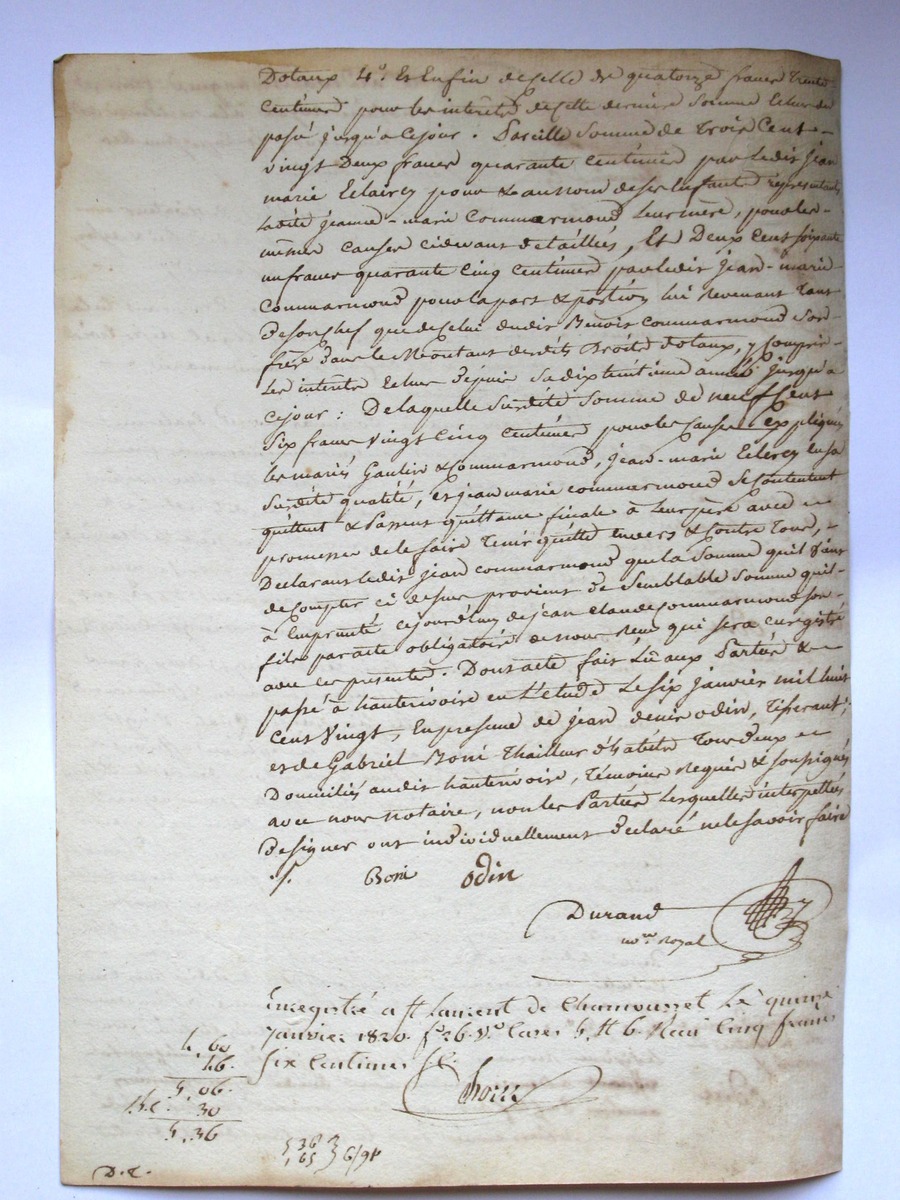 Dotaux 4º. Et Enfin de celle de quatorze francs trente
Centimes pour les interets de cette derniere somme Echus du
passé jusqu'a ce jour. Pareille somme de trois Cent
vingt Deux francs quarante Centimes par ledit jean
marie Eclercy pour & au nom de ses Enfants representants
Ladite jeanne-marie Commarmond Leur mère, pour les
mêmes causes cidevant detaillées, Et Deux Cent soixante
un francs quarante Cinq Centimes par ledit jean-marie
Commarmond pour la part & portion lui Revenant tant
De son chef que de Celui dudit Benoit Commarmond son
frere dans le Montant desdits Droits dotaux, y Compris
Les interets Echus depuis sa dixhuitieme année jusqu'à
ce jour : De laquelle susdite somme de neuf Cent
six francs vingt Cinq Centimes pour les causes expliquées
les mariés Gaulin & Commarmond, jean-marie Eclercy en sa
susdite qualité, et jean marie commarmond se Contentent
quittent & Passent quittance finale à Leur père avec
promesse de le faire tenir quitte envers & Contre tous,
Declarant ledit jean commarmond que la somme qu'il vient
de compter ci dessus provient de semblable somme qu'il
à Emprunté cejourd'huy de jean Claude Commarmond son
fils par acte obligatoire de nous Reçu qui sera enregistré
avec ces presentes. Dont acte fait Lu aux Parties &
passé à hauterivoire en L'etude Le six janvier mil huit
Cent Vingt, En presence de jean denis odin, tisserant,
et de Gabriel Boni Thailleur d'habits tous deux
Domiciliés audit hauterivoire, témoins Requis & soussignés
avec nous notaire, non les Parties Lesquelles interpellées
de signer ont individuellement declaré ne le savoir faire
./. Boni odin
Durand
no.re Royal
Enregistré a St Laurent de Chamousset Le quinze
Janvier 1820. fº 26. Vº. Cases 5. Et 6. Recu Cinq francs
six Centimes S.C.
4,60
46
5,06
30
5,36
5 36
1,65
6/91
D.C.